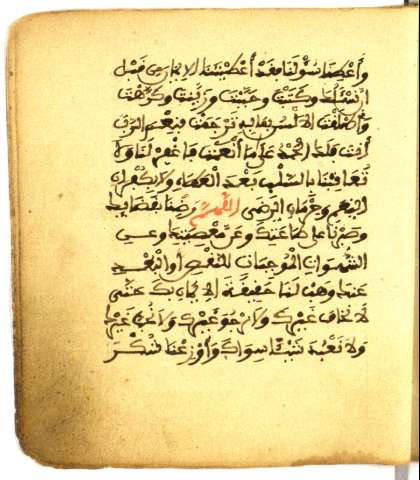 وأعطنا سؤلنا فقد أعطيتنا الايمان من قبل
ان نسئلك وكتبت وحببت وزينت وكرهت
وأطلقت الالسن بما به ترجمت فنعم الرب
أنت فلك الحمد على ما أنعمت فاغفر لنا ولا
تعاقبنا بالسلب بعد العطاء ولا بكفران
النعم وحرمان الرضى اللهم رضنا بقضائك
وصبرنا على طاعتك وعن معصيتك وعن
الشهوات الموجبات للنقص أو البعد
عنك وهب لنا حقيقة الايمان بك حتى
لا نخاف غيرك ولا نرجو غيرك ولا نحب غيرك
ولا نعبد شيئا سواك وأوزعنا شكر